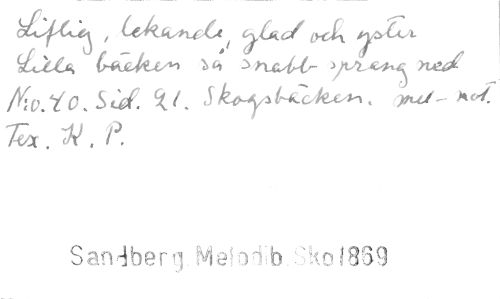 Liflig, lekande, glad och yster
Lilla bäcken så snabb sprang ned
N:o. 40. Sid. 21. Skogsbäcken. mel-not.
Tex. K. P.
Sandberg. Melodib. Sko 1869